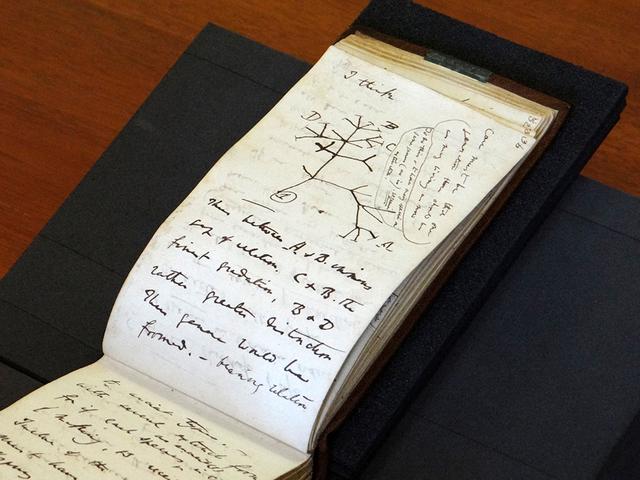 I think
36
D B
C
A
1
Case must be that
one generation then
should be as many
living as now
To do this & to have many species in
same genus (as is) requires
extinction
Thus between A & B. immens
gap of relation. C & B. the
finest gradation, B & D
rather greater distinction
Thus genera would be
formed. — bearing relation
to ancient types. —
with several extinct forms
for if each species, an